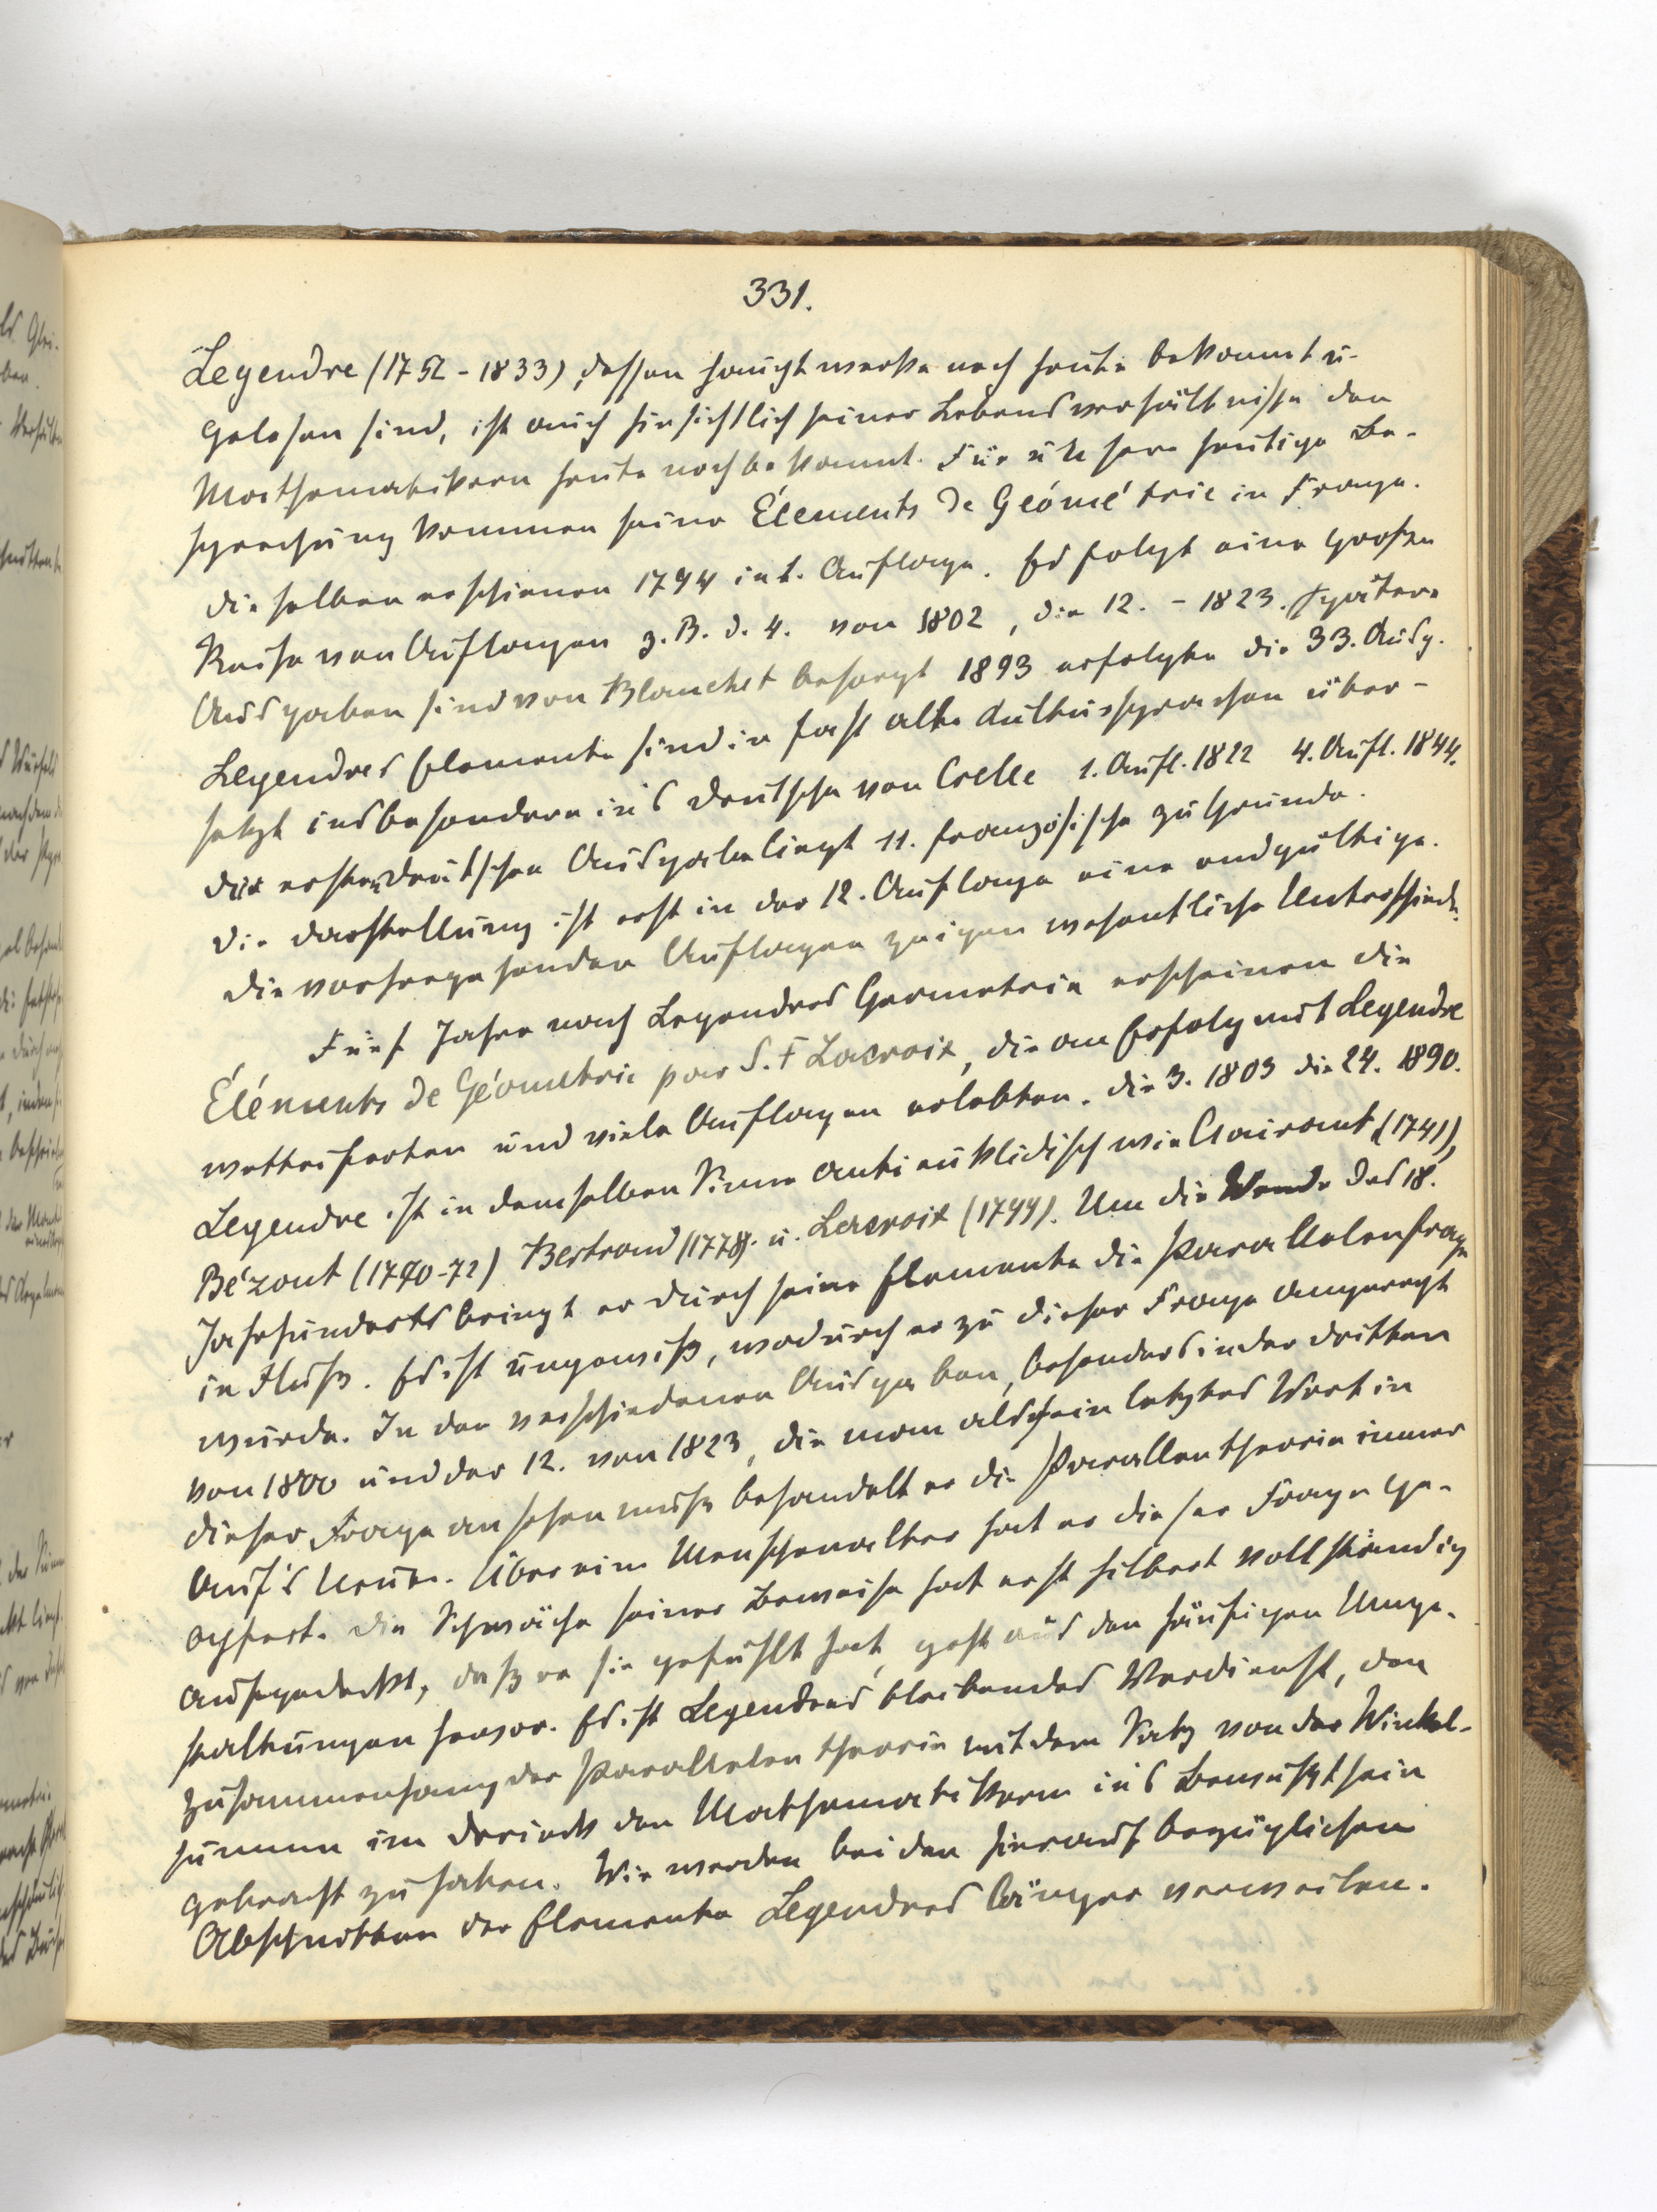 331.
Legendre (1752-1833), dessen Hauptwerke noch heute bekannt u.
gelesen sind, ist auch hinsichtlich seiner Lebensverhältnisse den
Mathematikern heute noch bekannt. Für unsere heutige Be-
sprechung kommen seine Élements de Géométrie in Frage.
Dieselben erschienen 1794 in 1. Auflage. Es folgt eine große
Reihe von Auflagen z. B. d. 4. von 1802, die 12. - 1823. Spätere
Ausgaben sind von Blanchet besorgt 1893 erfolgte die 33. Ausg.
Legendres Elemente sind in fast alle Kultursprachen über-
setzt insbesondere in's Deutsche von Crelle 1. Aufl. 1822 4. Aufl. 1844.
Der ersten deutschen Ausgabe liegt 11. französische zu Grunde.
Die Darstellung ist erst in der 12. Auflage eine endgültige.
Die vorhergehenden Auflagen zeigen wesentliche Unterschiede.
Fünf Jahre nach Legendres Geometrie erscheinen die
Éléments de Géometrie par S. F Lacroix, die an Erfolg mit Legendre
wetteiferten und viele Auflagen erlebten. Die 3. 1803 die 24. 1890.
Legendre ist in demselben Sinne antieuklidisch wie Clairaut (1741),
Bézout (1770-72) Bertrand (1778). u. Lacroix (1799). Um die Wende des 18.
Jahrhunderts bringt er durch seine Elemente die Parallelenfrage
in Fluß. Es ist ungewiß, wodurch er zu dieser Frage angeregt
wurde. In den verschiedenen Ausgaben, besonders in der dritten
von 1800 und der 12. von 1823, die man als sein letztes Wort in
dieser Frage ansehen muß behandelt er die Parallentheorie immer
auf's Neue. Über ein Menschenalter hat er dieser Frage ge-
opfert. Die Schwäche seiner Beweise hat erst Hilbert vollständig
aufgedeckt, daß er sie gefühlt hat, geht aus den häufigen Umge-
staltungen hervor. Es ist Legendres bleibendes Verdienst, den
Zusammenhang der Parallelentheorie mit dem Satz von der Winkel-
summe im Dreieck den Mathematikern in's Bewußtsein
gebracht zu haben. Wir werden bei den hierauf bezüglichen
Abschnitten der Elemente Legendres länger verweilen.